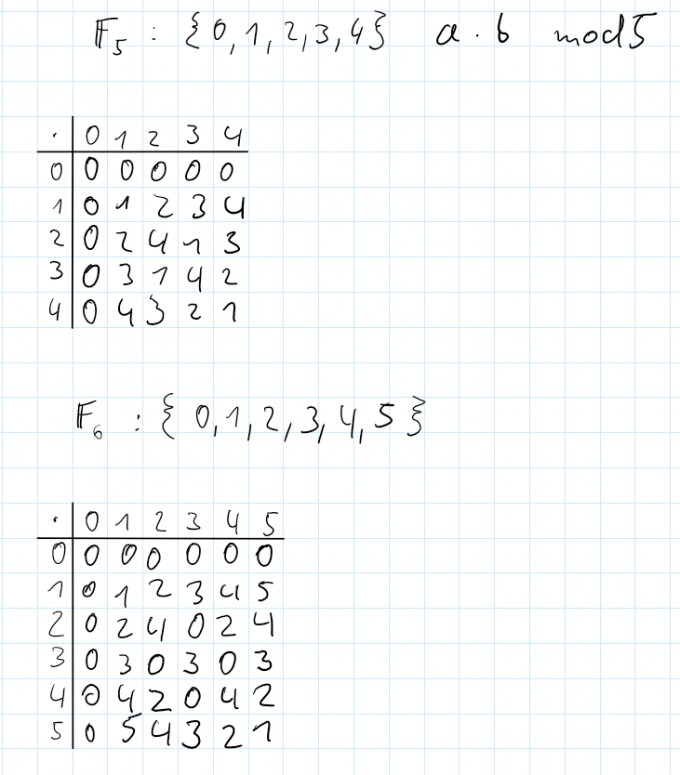 𝔽₅ : {0,1,2,3,4} a · b mod5
· 0 1 2 3 4
0 0 0 0 0 0
1 0 1 2 3 4
2 0 2 4 1 3
3 0 3 1 4 2
4 0 4 3 2 1
𝔽₆ : {0,1,2,3,4,5}
· 0 1 2 3 4 5
0 0 0 0 0 0 0
1 0 1 2 3 4 5
2 0 2 4 0 2 4
3 0 3 0 3 0 3
4 0 4 2 0 4 2
5 0 5 4 3 2 1